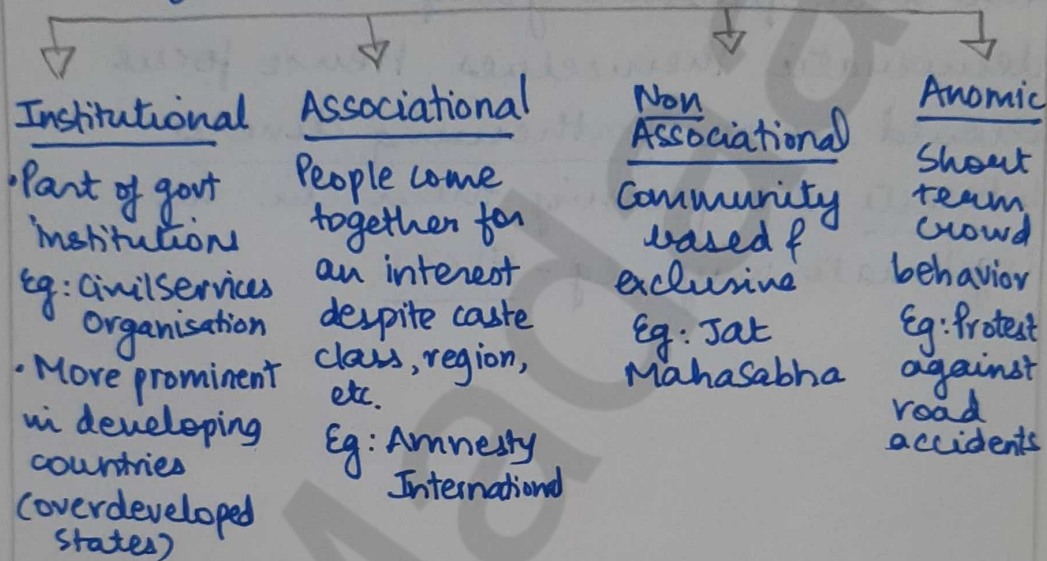 Institutional
•Part of govt
institutions
Eg: Civil Services
Organisation
• More prominent
in developing
countries
(overdeveloped
states)
Associational
People come
together for
an interest
despite caste
class, region,
etc.
Eg: Amnesty
International
Non
Associational
Community
based &
exclusive
Eg: Jat
Mahasabha
Anomic
Short
term
crowd
behavior
Eg: Protest
against
road
accidents